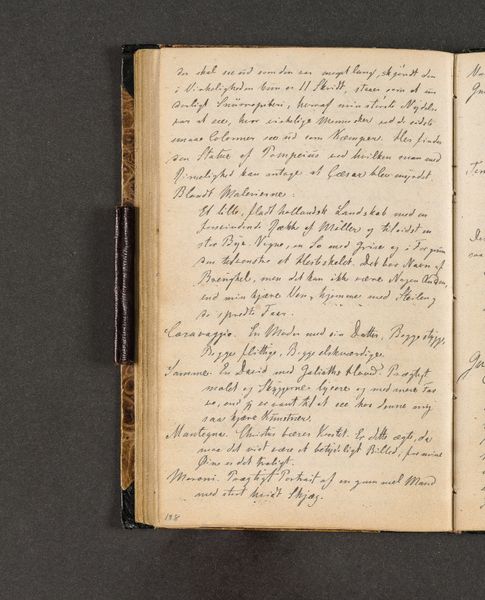 der skal see ud som den var meget lang, skjøndt den
i Virkeligheden kun er 11 Skridt, staaer som et un
derligt Snurrepiberi, hvoraf min største Nydelse
var at see, hvor virkelige Mennesker ved de sidste
smaae Colonner see ud som Kæmper. Her findes
den Statue af Pompeius ved hvilken man med
Rimelighed kan antage at Cæsar blev myrdet.
Blandt Malerierne:
Et lille, fladt hollandsk Landskab med en
forsvindende Række af Møller og til sidst en
stor Bye. Vogne, en So med Grise og i Forgrunden
en Hesteskelet. Det har Navn af
Breughel, men det kan ikke være Nogen Anden,
end min kjære Ven, hjemme med Steilen og
de spredte Faar.
Caravaggio. En Moder med sin Datter, Begge stygge,
Begge flittige, Begge elskværdige.
Samme. En David med Goliaths Hoved. Prægtigt
malet og Skyggerne lysere og med mere Far
ve, end jeg er vant til at see hos denne mig
saa kjære Kunstner.
Mantegna. Christus bærer Korset. Er dette ægte, da
maa det vist være et betydeligt Billed, for mine
Øine er det kjedeligt.
Moroni. Prægtigt Portrait af en gammel Mand
med stort hvidt Skjæg.
108